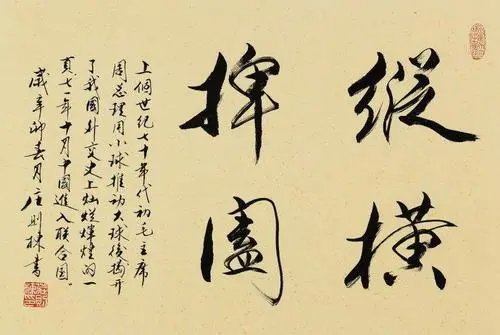 縱橫
捭闔
上個世纪七十年代初毛主席
周总理用小球推动大球後揭开
了我國外交史上灿烂辉煌的一
頁七一年十月中國進入联合国。
歲辛卯春月庄则栋書